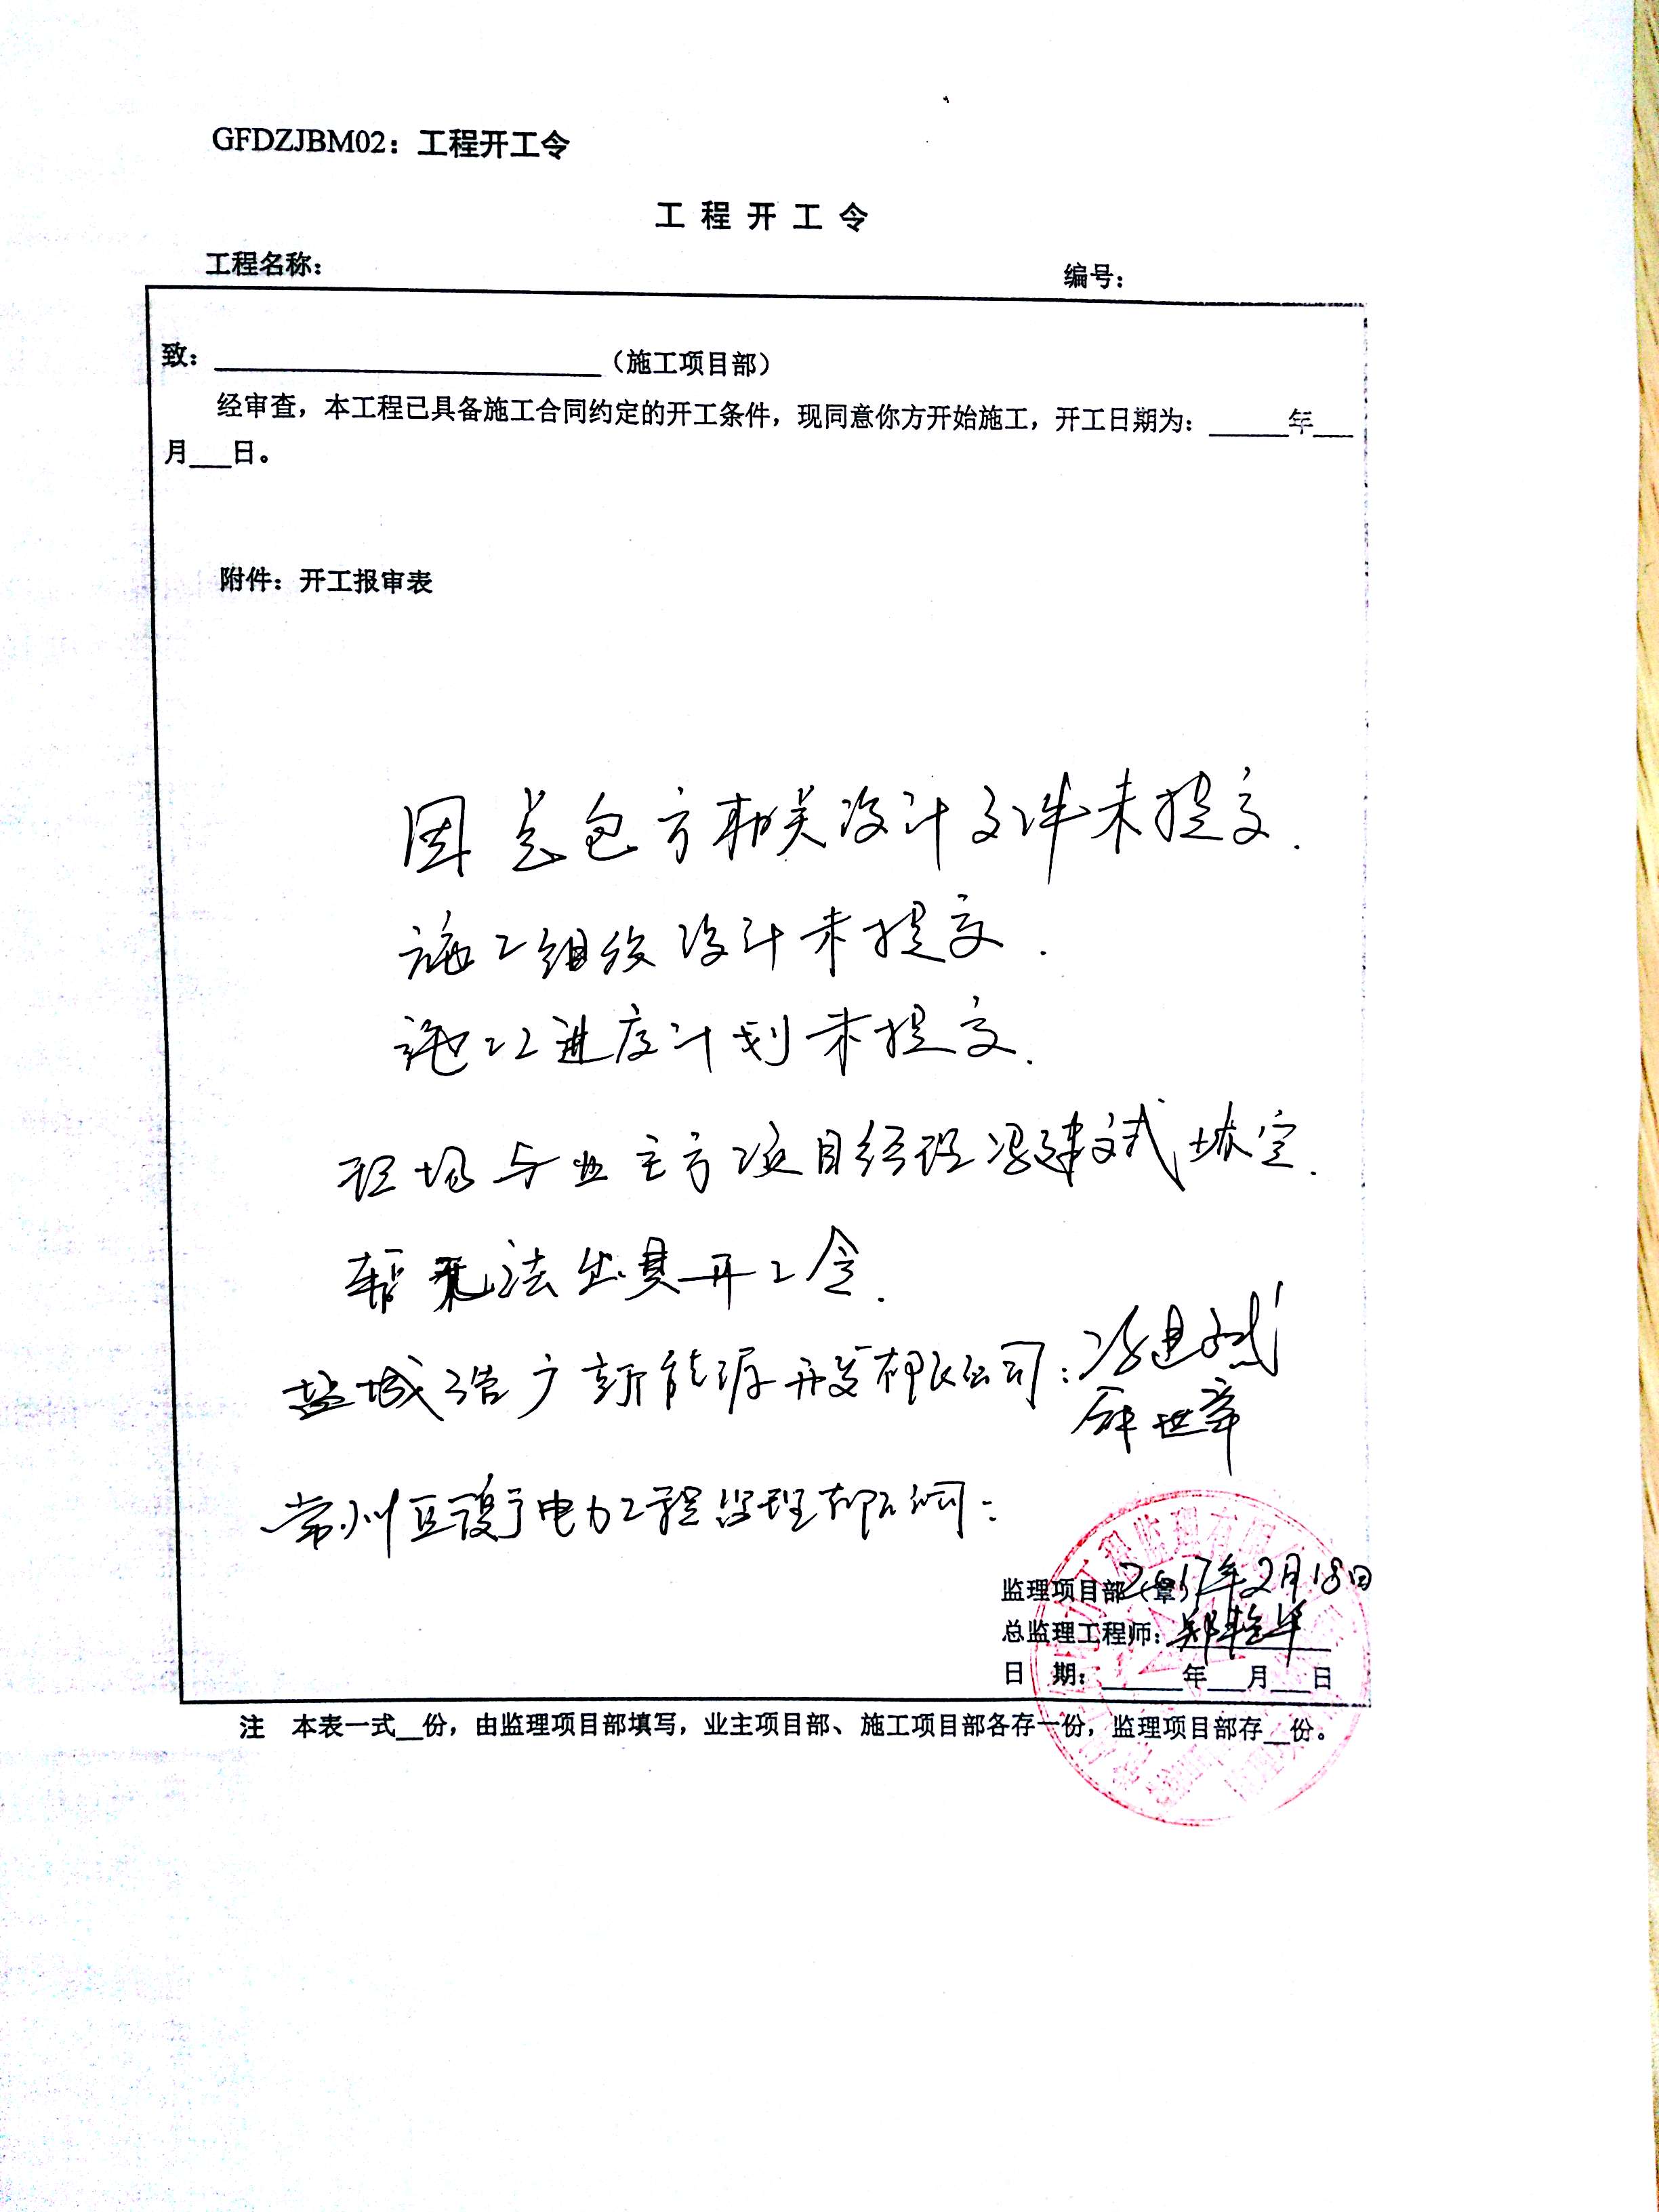 GFDZJBM02：工程开工令
工 程 开 工 令
工程名称：
编号：
致：______（施工项目部）
经审查，本工程已具备施工合同约定的开工条件，现同意你方开始施工，开工日期为：______年___
月___日。
附件：开工报审表
因总包方相关设计文件未提交.
施工组织设计未提交.
施工进度计划未提交.
现场与业主方项目经理冯建斌 定.
暂无法出具开工令.
盐城浩广新能源开发有限公司：冯建斌
薛世章
常州正 电力工程监理有限公司：
监理项目部（章） 2017年2月18日
总监理工程师：郑 华
日 期：______年___月___日
注 本表一式__份，由监理项目部填写，业主项目部、施工项目部各存一份，监理项目部存__份。
工程监理有限